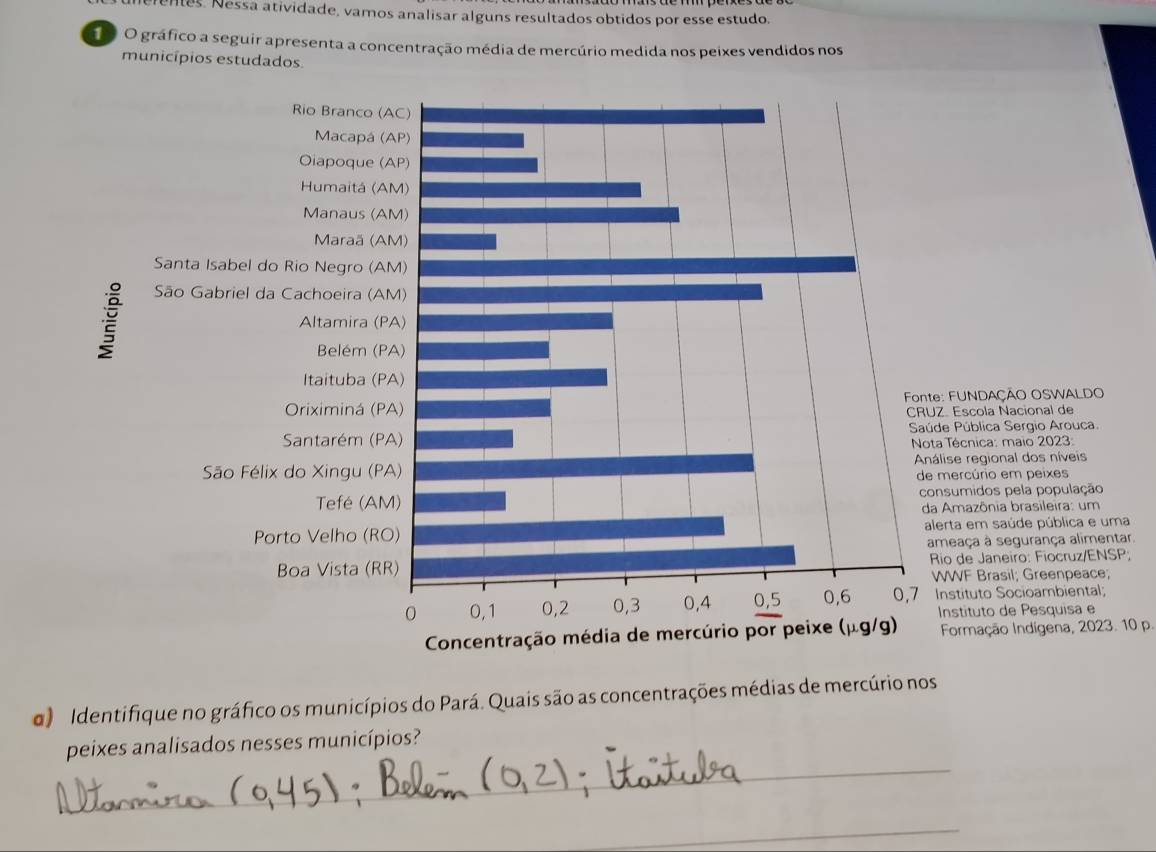 Nessa atividade, vamos analisar alguns resultados obtidos por esse estudo.
1 O gráfico a seguir apresenta a concentração média de mercúrio medida nos peixes vendidos nos
municípios estudados.
Município
Rio Branco (AC)
Macapá (AP)
Oiapoque (AP)
Humaitá (AM)
Manaus (AM)
Maraã (AM)
Santa Isabel do Rio Negro (AM)
São Gabriel da Cachoeira (AM)
Altamira (PA)
Belém (PA)
Itaituba (PA)
Oriximiná (PA)
Santarém (PA)
São Félix do Xingu (PA)
Tefé (AM)
Porto Velho (RO)
Boa Vista (RR)
0 0,1 0,2 0,3 0,4 0,5 0,6 0,7
Concentração média de mercúrio por peixe (μg/g)
Fonte: FUNDAÇÃO OSWALDO
CRUZ. Escola Nacional de
Saúde Pública Sergio Arouca.
Nota Técnica: maio 2023:
Análise regional dos níveis
de mercúrio em peixes
consumidos pela população
da Amazônia brasileira: um
alerta em saúde pública e uma
ameaça à segurança alimentar.
Rio de Janeiro: Fiocruz/ENSP;
WWF Brasil; Greenpeace;
Instituto Socioambiental;
Instituto de Pesquisa e
Formação Indígena, 2023. 10 p.
a) Identifique no gráfico os municípios do Pará. Quais são as concentrações médias de mercúrio nos
peixes analisados nesses municípios?
Altamira (0,45); Belém (0,2); itaituba